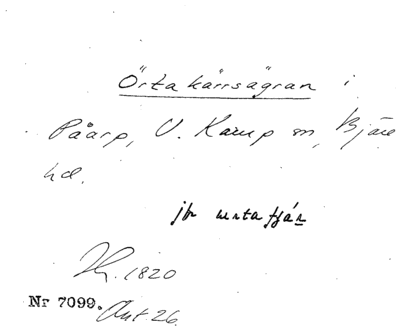 Örtakärrsägran i
Påarp, V. Karup sn, Bjäre
hd.
jfr urtatjä́r
Lh. 1820
Nr 7099. Ant. 26.